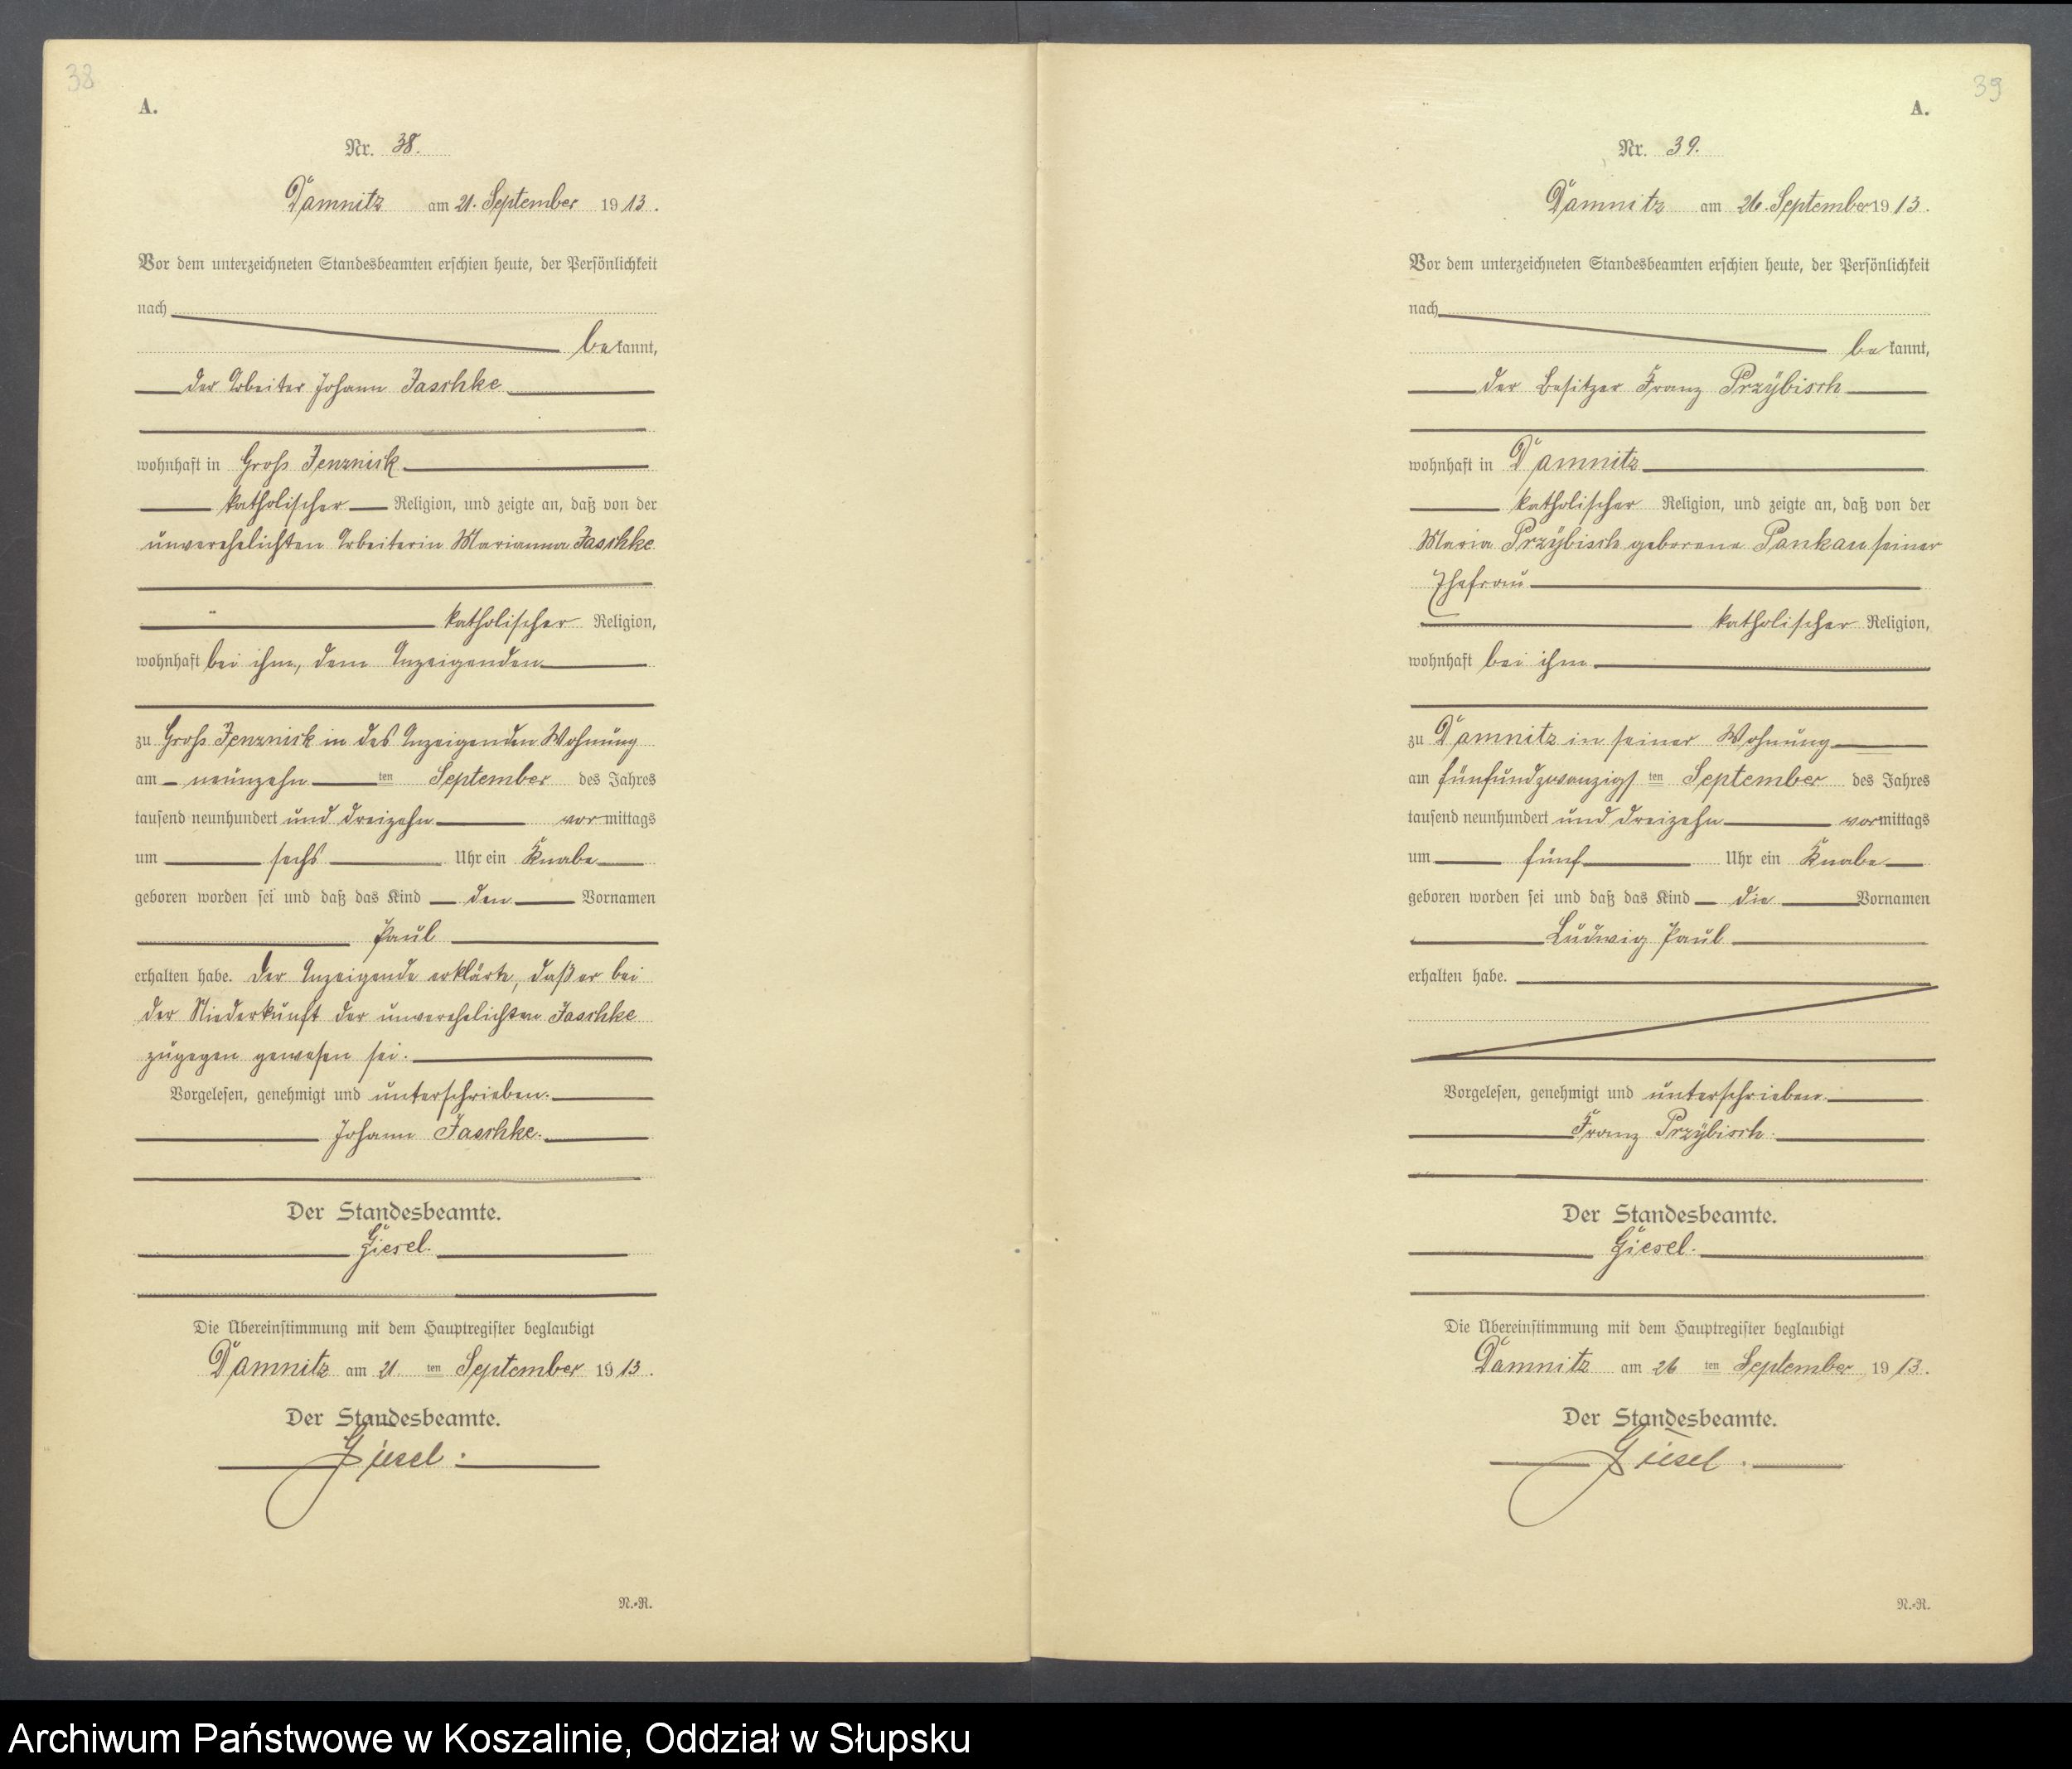 38
A.
Nr. 38.
Damnitz am 21. September 1913.
Vor dem unterzeichneten Standesbeamten erschien heute, der Persönlichkeit
nach
bekannt,
der Arbeiter Johann Jaschke
wohnhaft in Groß Jenznick
katholischer Religion, und zeigte an, daß von der
unverehelichten Arbeiterin Marianna Jaschke
katholischer Religion,
wohnhaft bei ihm, dem Anzeigenden
zu Groß Jenznick in des Anzeigenden Wohnung
am neunzehn ten September des Jahres
tausend neunhundert und dreizehn vormittags
um sechs Uhr ein Knabe
geboren worden sei und daß das Kind den Vornamen
Paul
erhalten habe. Der Anzeigende erklärte, daß er bei
der Niederkunft der unverehelichten Jaschke
zugegen gewesen sei.
Vorgelesen, genehmigt und unterschrieben.
Johann Jaschke.
Der Standesbeamte.
Giesel.
Die Übereinstimmung mit dem Hauptregister beglaubigt
Damnitz am 21. ten September 1913.
Der Standesbeamte.
Giesel.
N.-R.
39
A.
Nr. 39.
Damnitz am 26. September 1913.
Vor dem unterzeichneten Standesbeamten erschien heute, der Persönlichkeit
nach
bekannt,
der Besitzer Franz Przybisch
wohnhaft in Damnitz
katholischer Religion, und zeigte an, daß von der
Maria Przybisch geborene Pankau seiner
Ehefrau
katholischer Religion,
wohnhaft bei ihm
zu Damnitz in seiner Wohnung
am fünfundzwanzigs ten September des Jahres
tausend neunhundert und dreizehn vormittags
um fünf Uhr ein Knabe
geboren worden sei und daß das Kind die Vornamen
Ludwig Paul
erhalten habe.
Vorgelesen, genehmigt und unterschrieben.
Franz Przybisch.
Der Standesbeamte.
Giesel.
Die Übereinstimmung mit dem Hauptregister beglaubigt
Damnitz am 26 ten September 1913.
Der Standesbeamte.
Giesel.
N.-R.
Archiwum Państwowe w Koszalinie, Oddział w Słupsku